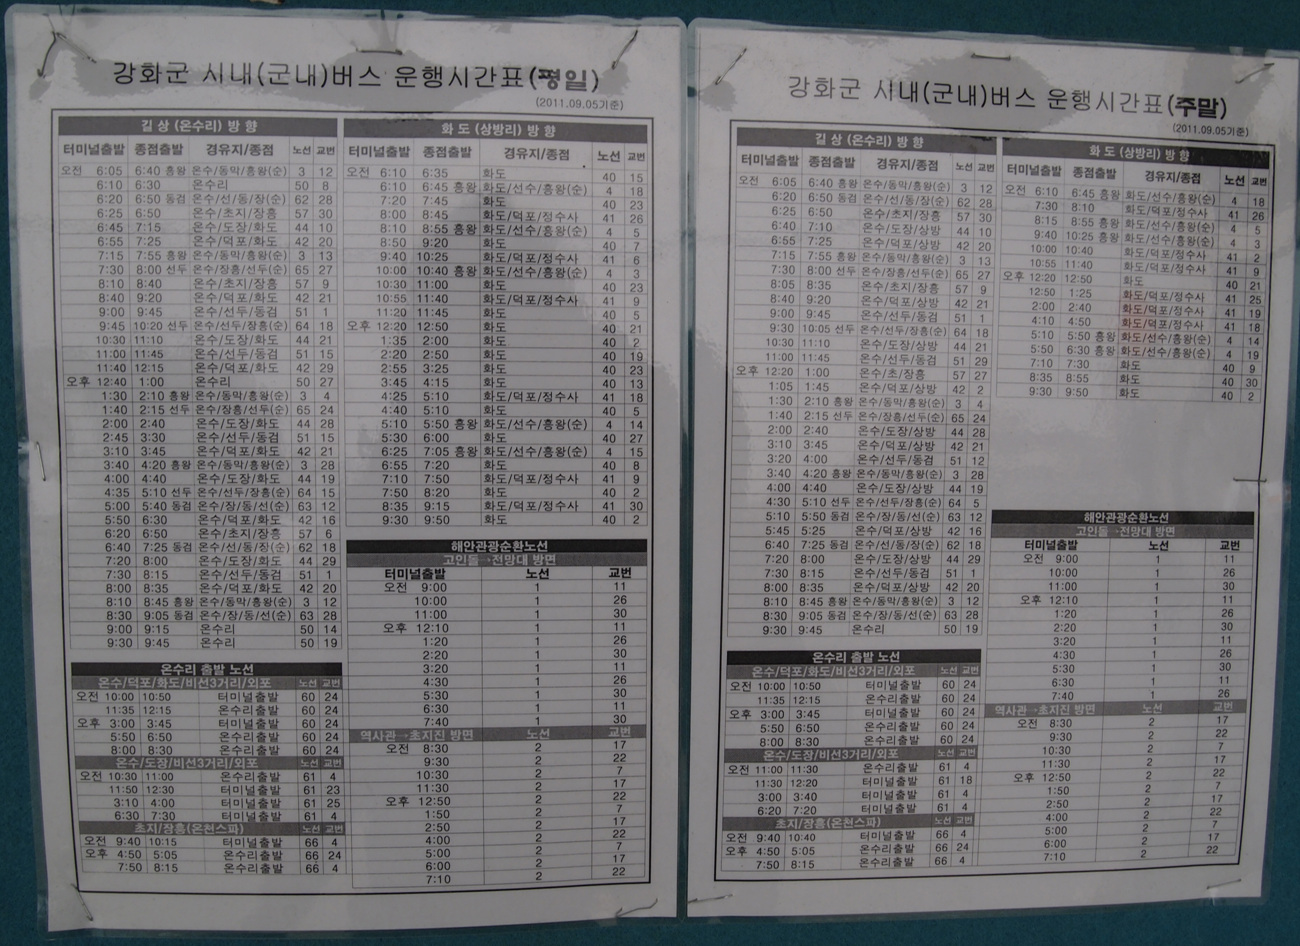 강화군 시내(군내)버스 운행시간표(평일)
(2011.09.05기준)
길 상 (온수리) 방 향
터미널출발 종점출발 경유지/종점 노선 교번
오전 6:05 6:40 흥왕 온수/동막/흥왕(순) 3 12
6:10 6:30 온수리 50 8
6:20 6:50 동검 온수/선/동/장(순) 62 28
6:25 6:50 온수/초지/장흥 57 30
6:45 7:15 온수/도장/화도 44 10
6:55 7:25 온수/덕포/화도 42 20
7:15 7:55 흥왕 온수/동막/흥왕(순) 3 13
7:30 8:00 선두 온수/장흥/선두(순) 65 27
8:10 8:40 온수/초지/장흥 57 9
8:40 9:20 온수/덕포/화도 42 21
9:00 9:45 온수/선두/동검 51 1
9:45 10:20 선두 온수/선두/장흥(순) 64 18
10:30 11:10 온수/도장/화도 44 21
11:00 11:45 온수/선두/동검 51 15
11:40 12:15 온수/덕포/화도 42 29
오후 12:40 1:00 온수리 50 27
1:30 2:10 흥왕 온수/동막/흥왕(순) 3 4
1:40 2:15 선두 온수/장흥/선두(순) 65 24
2:00 2:40 온수/도장/화도 44 28
2:45 3:30 온수/선두/동검 51 15
3:10 3:45 온수/덕포/화도 42 21
3:40 4:20 흥왕 온수/동막/흥왕(순) 3 28
4:00 4:40 온수/도장/화도 44 19
4:35 5:10 선두 온수/선두/장흥(순) 64 15
5:00 5:40 동검 온수/장/동/선(순) 63 12
5:50 6:30 온수/덕포/화도 42 16
6:20 6:50 온수/초지/장흥 57 6
6:40 7:25 동검 온수/선/동/장(순) 62 18
7:20 8:00 온수/도장/화도 44 29
7:30 8:15 온수/선두/동검 51 1
8:00 8:35 온수/덕포/화도 42 20
8:10 8:45 흥왕 온수/동막/흥왕(순) 3 12
8:30 9:05 동검 온수/장/동/선(순) 63 28
9:00 9:15 온수리 50 14
9:30 9:45 온수리 50 19
온수리 출발 노선
온수/덕포/화도/비선3거리/외포 노선 교번
오전 10:00 10:50 터미널출발 60 24
11:35 12:15 온수리출발 60 24
오후 3:00 3:45 터미널출발 60 24
5:50 6:50 온수리출발 60 24
8:00 8:30 온수리출발 60 24
온수/도장/비선3거리/외포 노선 교번
오전 10:30 11:00 온수리출발 61 4
11:50 12:30 터미널출발 61 23
3:10 4:00 터미널출발 61 25
6:30 7:30 온수리출발 61 4
초지/장흥(온천스파) 노선 교번
오전 9:40 10:15 터미널출발 66 4
오후 4:50 5:05 온수리출발 66 24
7:50 8:15 온수리출발 66 4
화 도 (상방리) 방 향
터미널출발 종점출발 경유지/종점 노선 교번
오전 6:10 6:35 화도 40 15
6:10 6:45 흥왕 화도/선수/흥왕(순) 4 18
7:20 7:45 화도 40 23
8:00 8:45 화도/덕포/정수사 41 26
8:10 8:55 흥왕 화도/선수/흥왕(순) 4 5
8:50 9:20 화도 40 7
9:40 10:25 화도/덕포/정수사 41 6
10:00 10:40 흥왕 화도/선수/흥왕(순) 4 3
10:30 11:00 화도 40 23
10:55 11:40 화도/덕포/정수사 41 9
11:20 11:45 화도 40 5
오후 12:20 12:50 화도 40 21
1:35 2:00 화도 40 2
2:20 2:50 화도 40 19
2:55 3:25 화도 40 23
3:45 4:15 화도 40 13
4:25 5:10 화도/덕포/정수사 41 18
4:40 5:10 화도 40 5
5:10 5:50 흥왕 화도/선수/흥왕(순) 4 14
5:30 6:00 화도 40 27
6:25 7:05 흥왕 화도/선수/흥왕(순) 4 15
6:55 7:20 화도 40 8
7:10 7:50 화도/덕포/정수사 41 9
7:50 8:20 화도 40 2
8:35 9:15 화도/덕포/정수사 41 30
9:30 9:50 화도 40 2
해안관광순환노선
고인돌→전망대 방면
터미널출발 노선 교번
오전 9:00 1 11
10:00 1 26
11:00 1 30
오후 12:10 1 11
1:20 1 26
2:20 1 30
3:20 1 11
4:30 1 26
5:30 1 30
6:30 1 11
7:40 1 30
역사관→초지진 방면 노선 교번
오전 8:30 2 17
9:30 2 22
10:30 2 7
11:30 2 17
오후 12:50 2 22
1:50 2 7
2:50 2 17
4:00 2 22
5:00 2 7
6:00 2 17
7:10 2 22
강화군 시내(군내)버스 운행시간표(주말)
(2011.09.05기준)
길 상 (온수리) 방 향
터미널출발 종점출발 경유지/종점 노선 교번
오전 6:05 6:40 흥왕 온수/동막/흥왕(순) 3 12
6:20 6:50 동검 온수/선/동/장(순) 62 28
6:25 6:50 온수/초지/장흥 57 30
6:40 7:10 온수/도장/상방 44 10
6:55 7:25 온수/덕포/상방 42 20
7:15 7:55 흥왕 온수/동막/흥왕(순) 3 13
7:30 8:00 선두 온수/장흥/선두(순) 65 27
8:05 8:35 온수/초지/장흥 57 9
8:40 9:20 온수/덕포/상방 42 21
9:00 9:45 온수/선두/동검 51 1
9:30 10:05 선두 온수/선두/장흥(순) 64 18
10:30 11:10 온수/도장/상방 44 21
11:00 11:45 온수/선두/동검 51 29
오후 12:20 1:00 온수/초/장흥 57 27
1:05 1:45 온수/덕포/상방 42 2
1:30 2:10 흥왕 온수/동막/흥왕(순) 3 4
1:40 2:15 선두 온수/장흥/선두(순) 65 24
2:00 2:40 온수/도장/상방 44 28
3:10 3:45 온수/덕포/상방 42 21
3:20 4:00 온수/선두/동검 51 12
3:40 4:20 흥왕 온수/동막/흥왕(순) 3 28
4:00 4:40 온수/도장/상방 44 19
4:30 5:10 선두 온수/선두/장흥(순) 64 5
5:10 5:50 동검 온수/장/동/선(순) 63 12
5:45 5:25 온수/덕포/상방 42 16
6:40 7:25 동검 온수/선/동/장(순) 62 18
7:20 8:00 온수/도장/상방 44 29
7:30 8:15 온수/선두/동검 51 1
8:00 8:35 온수/덕포/상방 42 20
8:10 8:45 흥왕 온수/동막/흥왕(순) 3 12
8:30 9:05 동검 온수/장/동/선(순) 63 28
9:30 9:45 온수리 50 19
온수리 출발 노선
온수/덕포/화도/비선3거리/외포 노선 교번
오전 10:00 10:50 터미널출발 60 24
11:35 12:15 온수리출발 60 24
오후 3:00 3:45 터미널출발 60 24
5:50 6:50 온수리출발 60 24
8:00 8:30 온수리출발 60 24
온수/도장/비선3거리/외포 노선 교번
오전 11:00 11:30 온수리출발 61 4
11:30 12:20 터미널출발 61 18
3:00 3:40 터미널출발 61 4
6:20 7:20 온수리출발 61 4
초지/장흥(온천스파) 노선 교번
오전 9:40 10:40 터미널출발 66 4
오후 4:50 5:05 온수리출발 66 24
7:50 8:15 온수리출발 66 4
화 도 (상방리) 방 향
터미널출발 종점출발 경유지/종점 노선 교번
오전 6:10 6:45 흥왕 화도/선수/흥왕(순) 4 18
7:30 8:10 화도/덕포/정수사 41 26
8:15 8:55 흥왕 화도/선수/흥왕(순) 4 5
9:40 10:25 흥왕 화도/선수/흥왕(순) 4 3
10:00 10:40 화도/덕포/정수사 41 2
10:55 11:40 화도/덕포/정수사 41 9
오후 12:20 12:50 화도 40 21
12:50 1:25 화도/덕포/정수사 41 25
2:00 2:40 화도/덕포/정수사 41 19
4:10 4:50 화도/덕포/정수사 41 18
5:10 5:50 흥왕 화도/선수/흥왕(순) 4 14
5:50 6:30 흥왕 화도/선수/흥왕(순) 4 19
7:10 7:30 화도 40 9
8:35 8:55 화도 40 30
9:30 9:50 화도 40 2
해안관광순환노선
고인돌→전망대 방면
터미널출발 노선 교번
오전 9:00 1 11
10:00 1 26
11:00 1 30
오후 12:10 1 11
1:20 1 26
2:20 1 30
3:20 1 11
4:30 1 26
5:30 1 30
6:30 1 11
7:40 1 26
역사관→초지진 방면 노선 교번
오전 8:30 2 17
9:30 2 22
10:30 2 7
11:30 2 17
오후 12:50 2 22
1:50 2 7
2:50 2 17
4:00 2 22
5:00 2 7
6:00 2 17
7:10 2 22